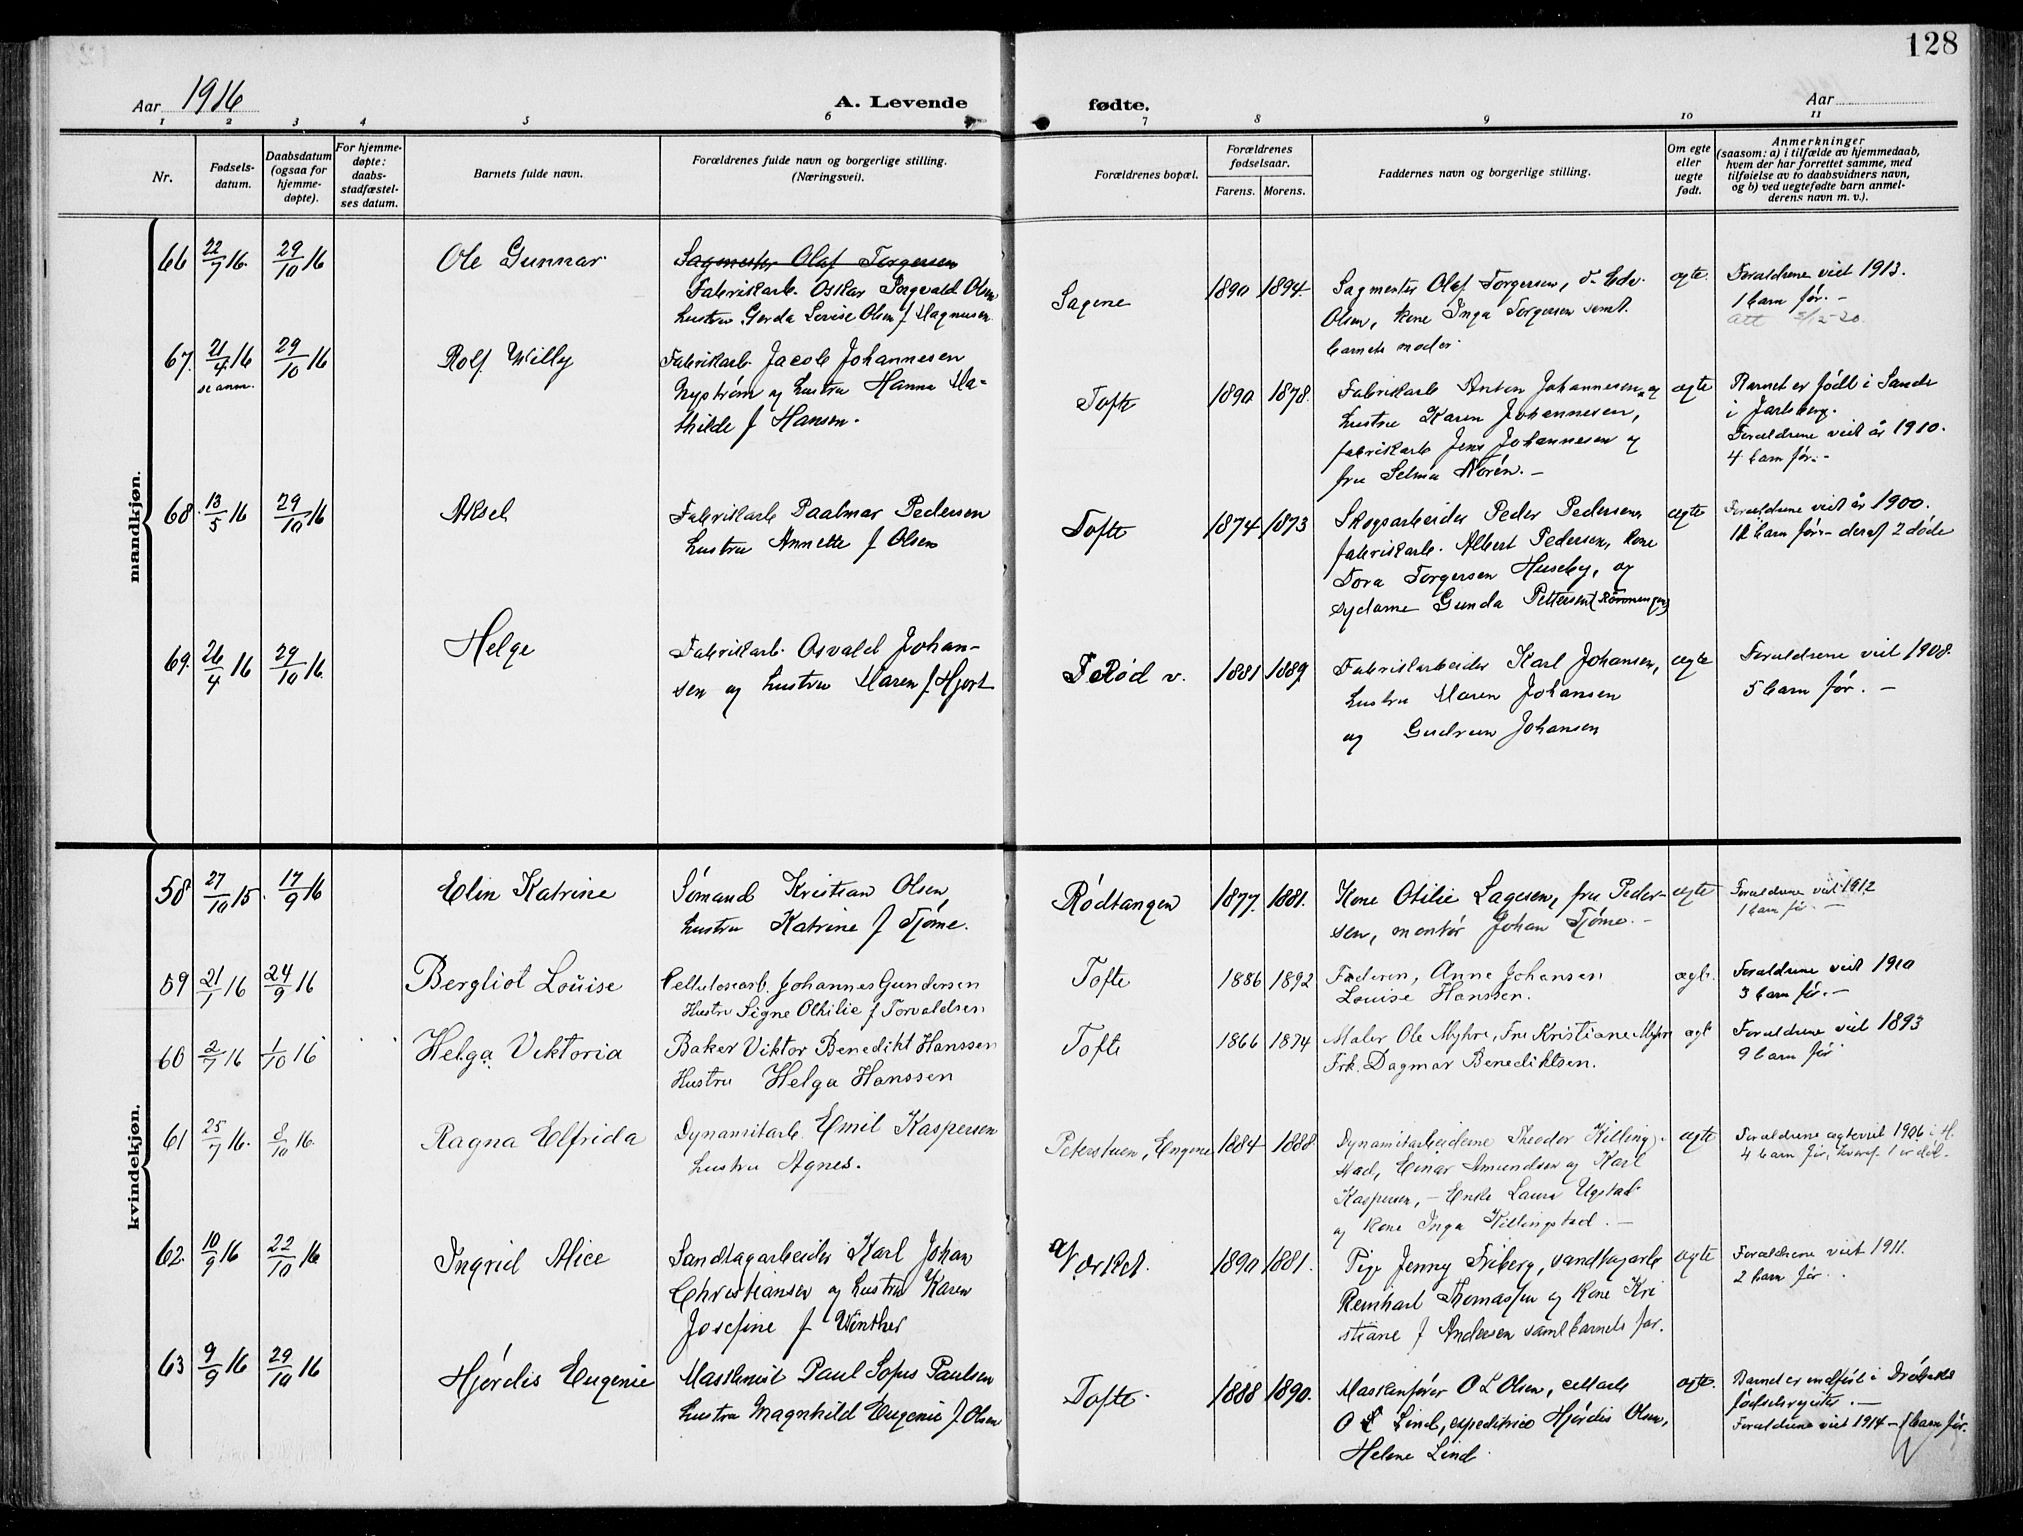 128
Aar 1916
A. Levende fødte.
Aar
1 2 3 4 5 6 7 8 9 10 11
Nr.
Fødsels-
datum.
Daabsdatum
(ogsaa for
hjemme-
døpte).
For hjemme-
døpte:
daabs-
stadfæstel-
ses datum.
Barnets fulde navn.
Forældrenes fulde navn og borgerlige stilling.
(Næringsvei).
Forældrenes bopæl.
Forældrenes
fødselsaar.
Farens. Morens.
Faddernes navn og borgerlige stilling.
Om egte
eller
uegte
født.
Anmerkninger
(saasom: a) i tilfælde av hjemmedaab,
hvem der har forrettet samme, med
tilføielse av to daabsvidners navn,
og b) ved uegtefødte barn anmel-
derens navn m. v.).
mandkjøn.
66 22/7 16. 29/10 16 Ole Gunnar
Sagmester Olaf Torgersen
Fabrikarb. Oskar Ingvald Olsen
hustru Gerda Lovise Olsen f Magnusen
Sagene 1890 1894.
Sagmester Olaf Torgersen, d. Edv.
Olsen, kone Inga Torgersen samt.
barnets moder.
egte.
Forældrene viet 1913.
1 barn før. -
Att 5/12-20.
67. 21/4 16 29/10 16 Rolf Willy
se anm.
Fabrikarb. Jacob Johannesen
Nystrøm og hustru Hanna Ma-
thilde f Hansen.
Tofte 1890 1878.
Fabrikarb Anton Johannesen og
hustru Karen Johannesen,
fabrikarb Jens Johannesen og
fru Selma Norén. -
egte
Barnet er født i Sande
i Jarlsberg.
Forældrene viet år 1910.
4 barn før. -
68. 13/5 16 29/10 16 Aksel
Fabrikarb Paalmar Pedersen
hustru Annette f Olsen
Tofte 1874 1873
Skogsarbeider Peder Pedersen,
fabrikarb. Albert Pedersen, kone
Tora Torgersen Huseby, og
sydame Gunda Pettersen
egte
Forældrene viet år 1900.
12 barn før - deraf 2 døde
69. 26/4 16 29/10 16. Helge
Fabrikarb. Osvald Johan-
sen og hustru Maren f. Hjort
Rød v. 1881 1889
Fabrikarbeider Karl Johansen,
hustru Maren Johansen
og Gudrun Johansen
egte
Forældrene viet 1908.
5 barn før. -
kvindekjøn.
58 27/10 15. 17/9 16 Elin Katrine
Sømand Kristian Olsen
hustru Katrine f Tjøme.
Rødtangen 1877. 1881.
Kone Otilie Lagesen, fru Peder-
sen, montør Johan Tjøme. -
egte
Forældrene viet 1912
1 barn før. -
59 21/1 16 24/9 16 Bergliot Louise
Cellulosearb. Johannes Gundersen
Hustru Signe Othilie f Torvaldsen
Tofte 1886 1892
Faderen, Anne Johansen
Louise Hanssen.
egt.
Forældrene viet 1910
3 barn før. -
60 2/7 16 1/10 16 Helga Viktoria
Baker Viktor Benedikt Hanssen
Hustru Helga Hanssen
Tofte 1866 1874
Maler Ole Myhre, Fru Kristiane Myhre
Frk. Dagmar Benediktsen.
egt
Forældrene viet 1893
9 barn før
61 25/7 16. 8/10 16. Ragna Elfrida
Dynamitarb. Emil Kaspersen
hustru Agnes.
Peterstuen, Engene 1884 1888
Dynamitarbeiderne Theodor Killing-
stad, Einar Amundsen og Karl
Kaspersen, - Enke Laura Ugstad
og kone Inga Killingstad. -
egte
Forældrene egteviet 1906 i H.
4 barn før, hvoraf 1 er død. -
62. 10/9 16 22/10 16 Ingrid Alice
Sandtagarbeider Karl Johan
Christiansen og hustru Karen
Josefine f Winther
Verket. 1890 1881.
Pige Jenny Friberg, sandtagarb
Reinhart Thomassen og kone Kri
stiane f Andersen samt barnets far.
egte
Forældrene viet 1911.
2 barn før.
63 9/9 16 29/10 16 Hjørdis Eugenie
Maskinist Paul Sofus Paulsen
hustru Magnhild Eugenie f. Olsen
Tofte. 1888 1890.
Maskinfører O L Olsen,
O Lind, expeditrice Hjørdis Olsen,
Helene Lind.
egte.
Barnet er indført i Drøbaks
fødselsregister. -
Forældrene viet 1914 - 1 barn før.